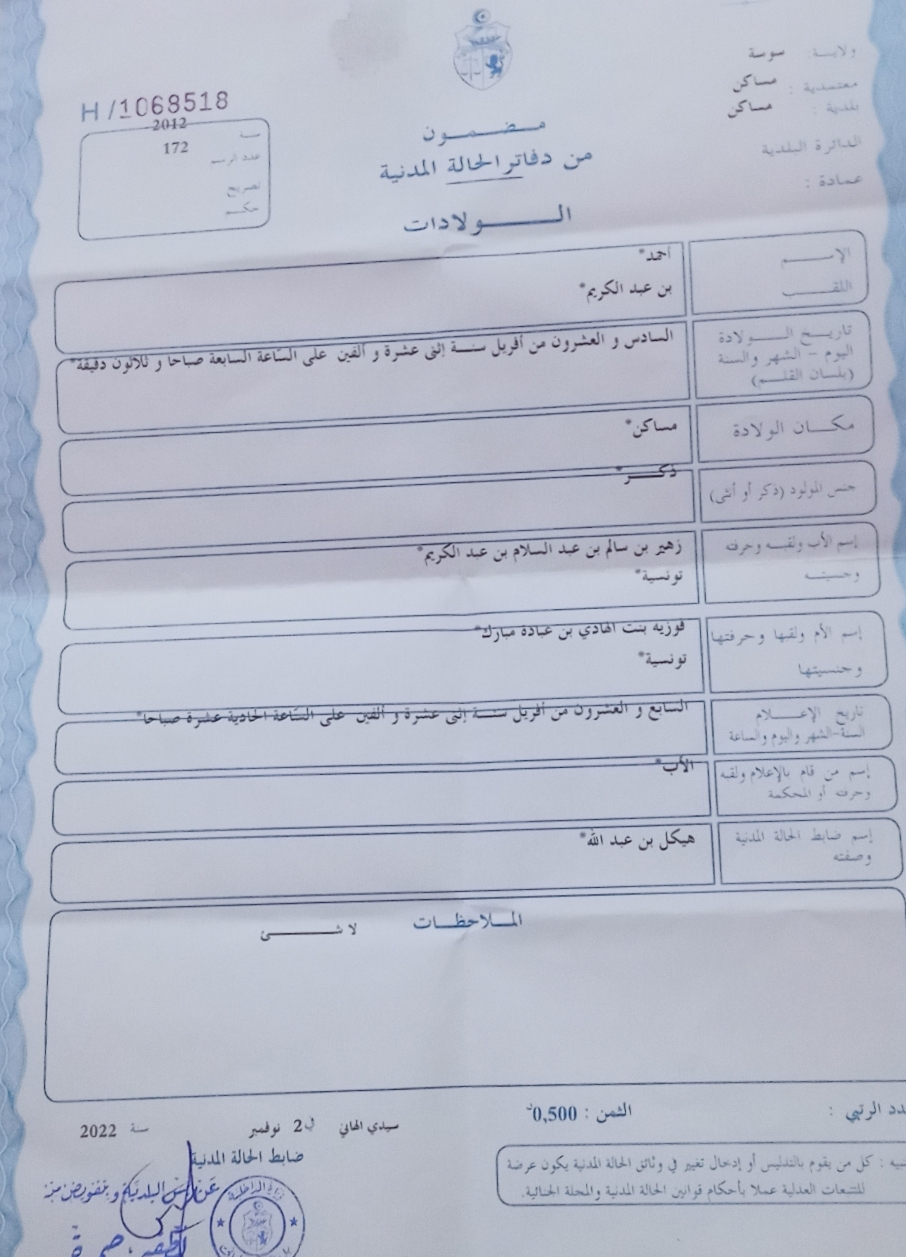 ولاية: سوسة
معتمدية: مساكن
بلدية: مساكن
الدائرة البلدية
عمادة:
H/1068518
سنة 2012
عدد الرسم 172
تصريح
حكم
مضمون
من دفاتر الحالة المدنية
الولادات
الإسم أحمد*
اللقب بن عبد الكريم*
تاريخ الولادة
اليوم - الشهر والسنة
(بلسان القلم)
السادس و العشرون من أفريل سنة إثنى عشرة و ألفين على السّاعة السابعة صباحا و ثلاثون دقيقة*
مكان الولادة مساكن*
جنس المولود (ذكر أو أنثى) ذكر*
إسم الأب ولقبه وحرفته زهير بن سالم بن عبد السلام بن عبد الكريم*
وجنسيته تونسية*
إسم الأم ولقبها وحرفتها فوزية بنت الهادي بن عبادة مبارك*
وجنسيتها تونسية*
تاريخ الإعلام
السنة-الشهر واليوم والساعة
السابع و العشرون من أفريل سنة إثنى عشرة و ألفين على السّاعة الحادية عشرة صباحا*
إسم من قام بالإعلام ولقبه
وحرفته أو المحكمة
الأب*
إسم ضابط الحالة المدنية
وصفته
هيكل بن عبد الله*
الملاحظات
لا شئ
دد الرتبي :
الثمن : 0,500د
سيدي الهاني في 2 نوفمبر سنة 2022
ضابط الحالة المدنية
عن رئيس البلدية و بتفويض منه
بيه : كل من يقوم بالتدليس أو إدخال تغيير في وثائق الحالة المدنية يكون عرضة
للتتبعات العدلية عملا بأحكام قوانين الحالة المدنية والمجلة الجنائية.